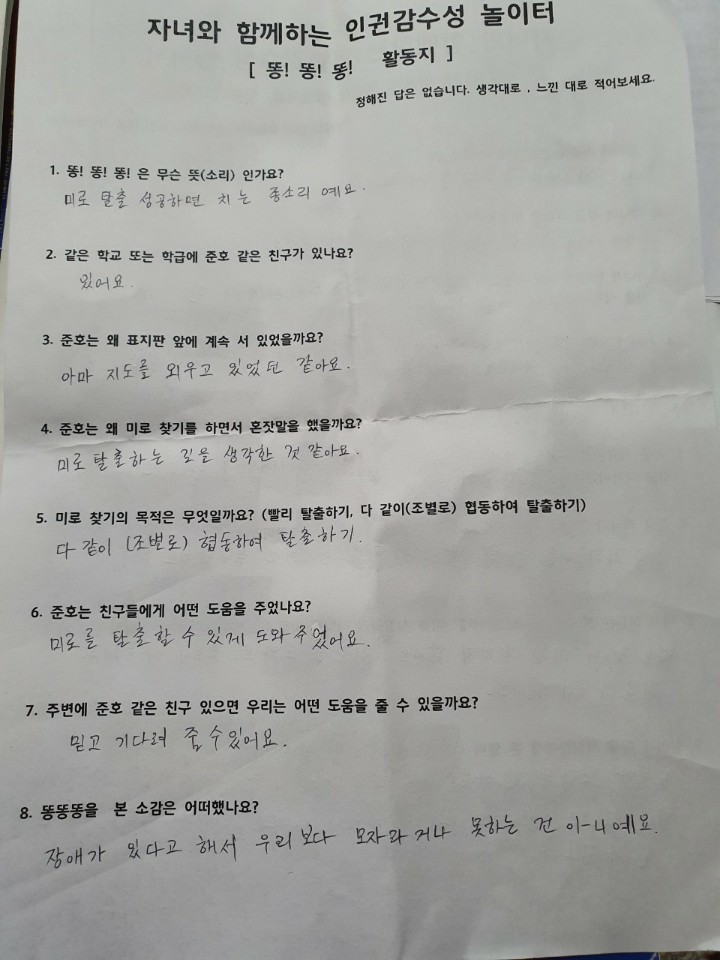 자녀와 함께하는 인권감수성 놀이터
[ 똥! 똥! 똥! 활동지 ]
정해진 답은 없습니다. 생각대로 , 느낀 대로 적어보세요.
1. 똥! 똥! 똥! 은 무슨 뜻(소리) 인가요?
미로 탈출 성공하면 치는 종소리 예요.
2. 같은 학교 또는 학급에 준호 같은 친구가 있나요?
있어요.
3. 준호는 왜 표지판 앞에 계속 서 있었을까요?
아마 지도를 외우고 있었던 같아요.
4. 준호는 왜 미로 찾기를 하면서 혼잣말을 했을까요?
미로 탈출하는 길을 생각한 것 같아요.
5. 미로 찾기의 목적은 무엇일까요? (빨리 탈출하기, 다 같이(조별로) 협동하여 탈출하기)
다 같이 (조별로) 협동하여 탈출하기.
6. 준호는 친구들에게 어떤 도움을 주었나요?
미로를 탈출할 수 있게 도와주었어요.
7. 주변에 준호 같은 친구 있으면 우리는 어떤 도움을 줄 수 있을까요?
믿고 기다려 줄 수 있어요.
8. 똥똥똥을 본 소감은 어떠했나요?
장애가 있다고 해서 우리보다 모자라거나 못하는 건 아니예요.